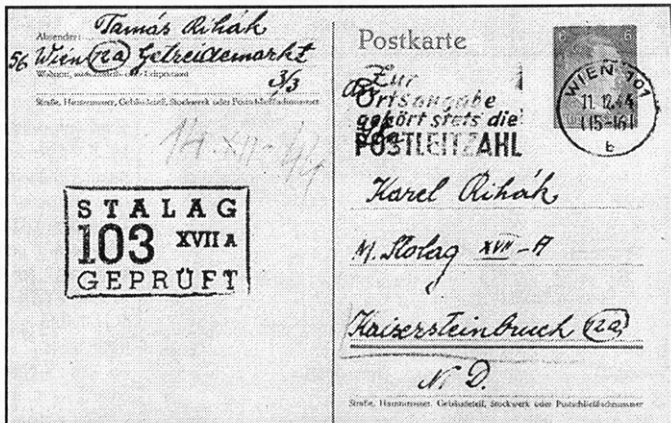 Absender: Tamás Rihák
56 Wien (12a) Getreidemarkt
3/3
Straße, Hausnummer, Gebäudeteil, Stockwerk oder Postschließfachnummer
14 XII 44
STALAG
103 XVII A
GEPRÜFT
Postkarte
6 6
Zur
Ortsangabe
gehört stets die
POSTLEITZAHL
WIEN 101
11. 12. 44
15-16
b
Karel Rihák
M. Stalag XVII-A
Kaisersteinbruch (12a)
N. D.
Straße, Hausnummer, Gebäudeteil, Stockwerk oder Postschließfachnummer